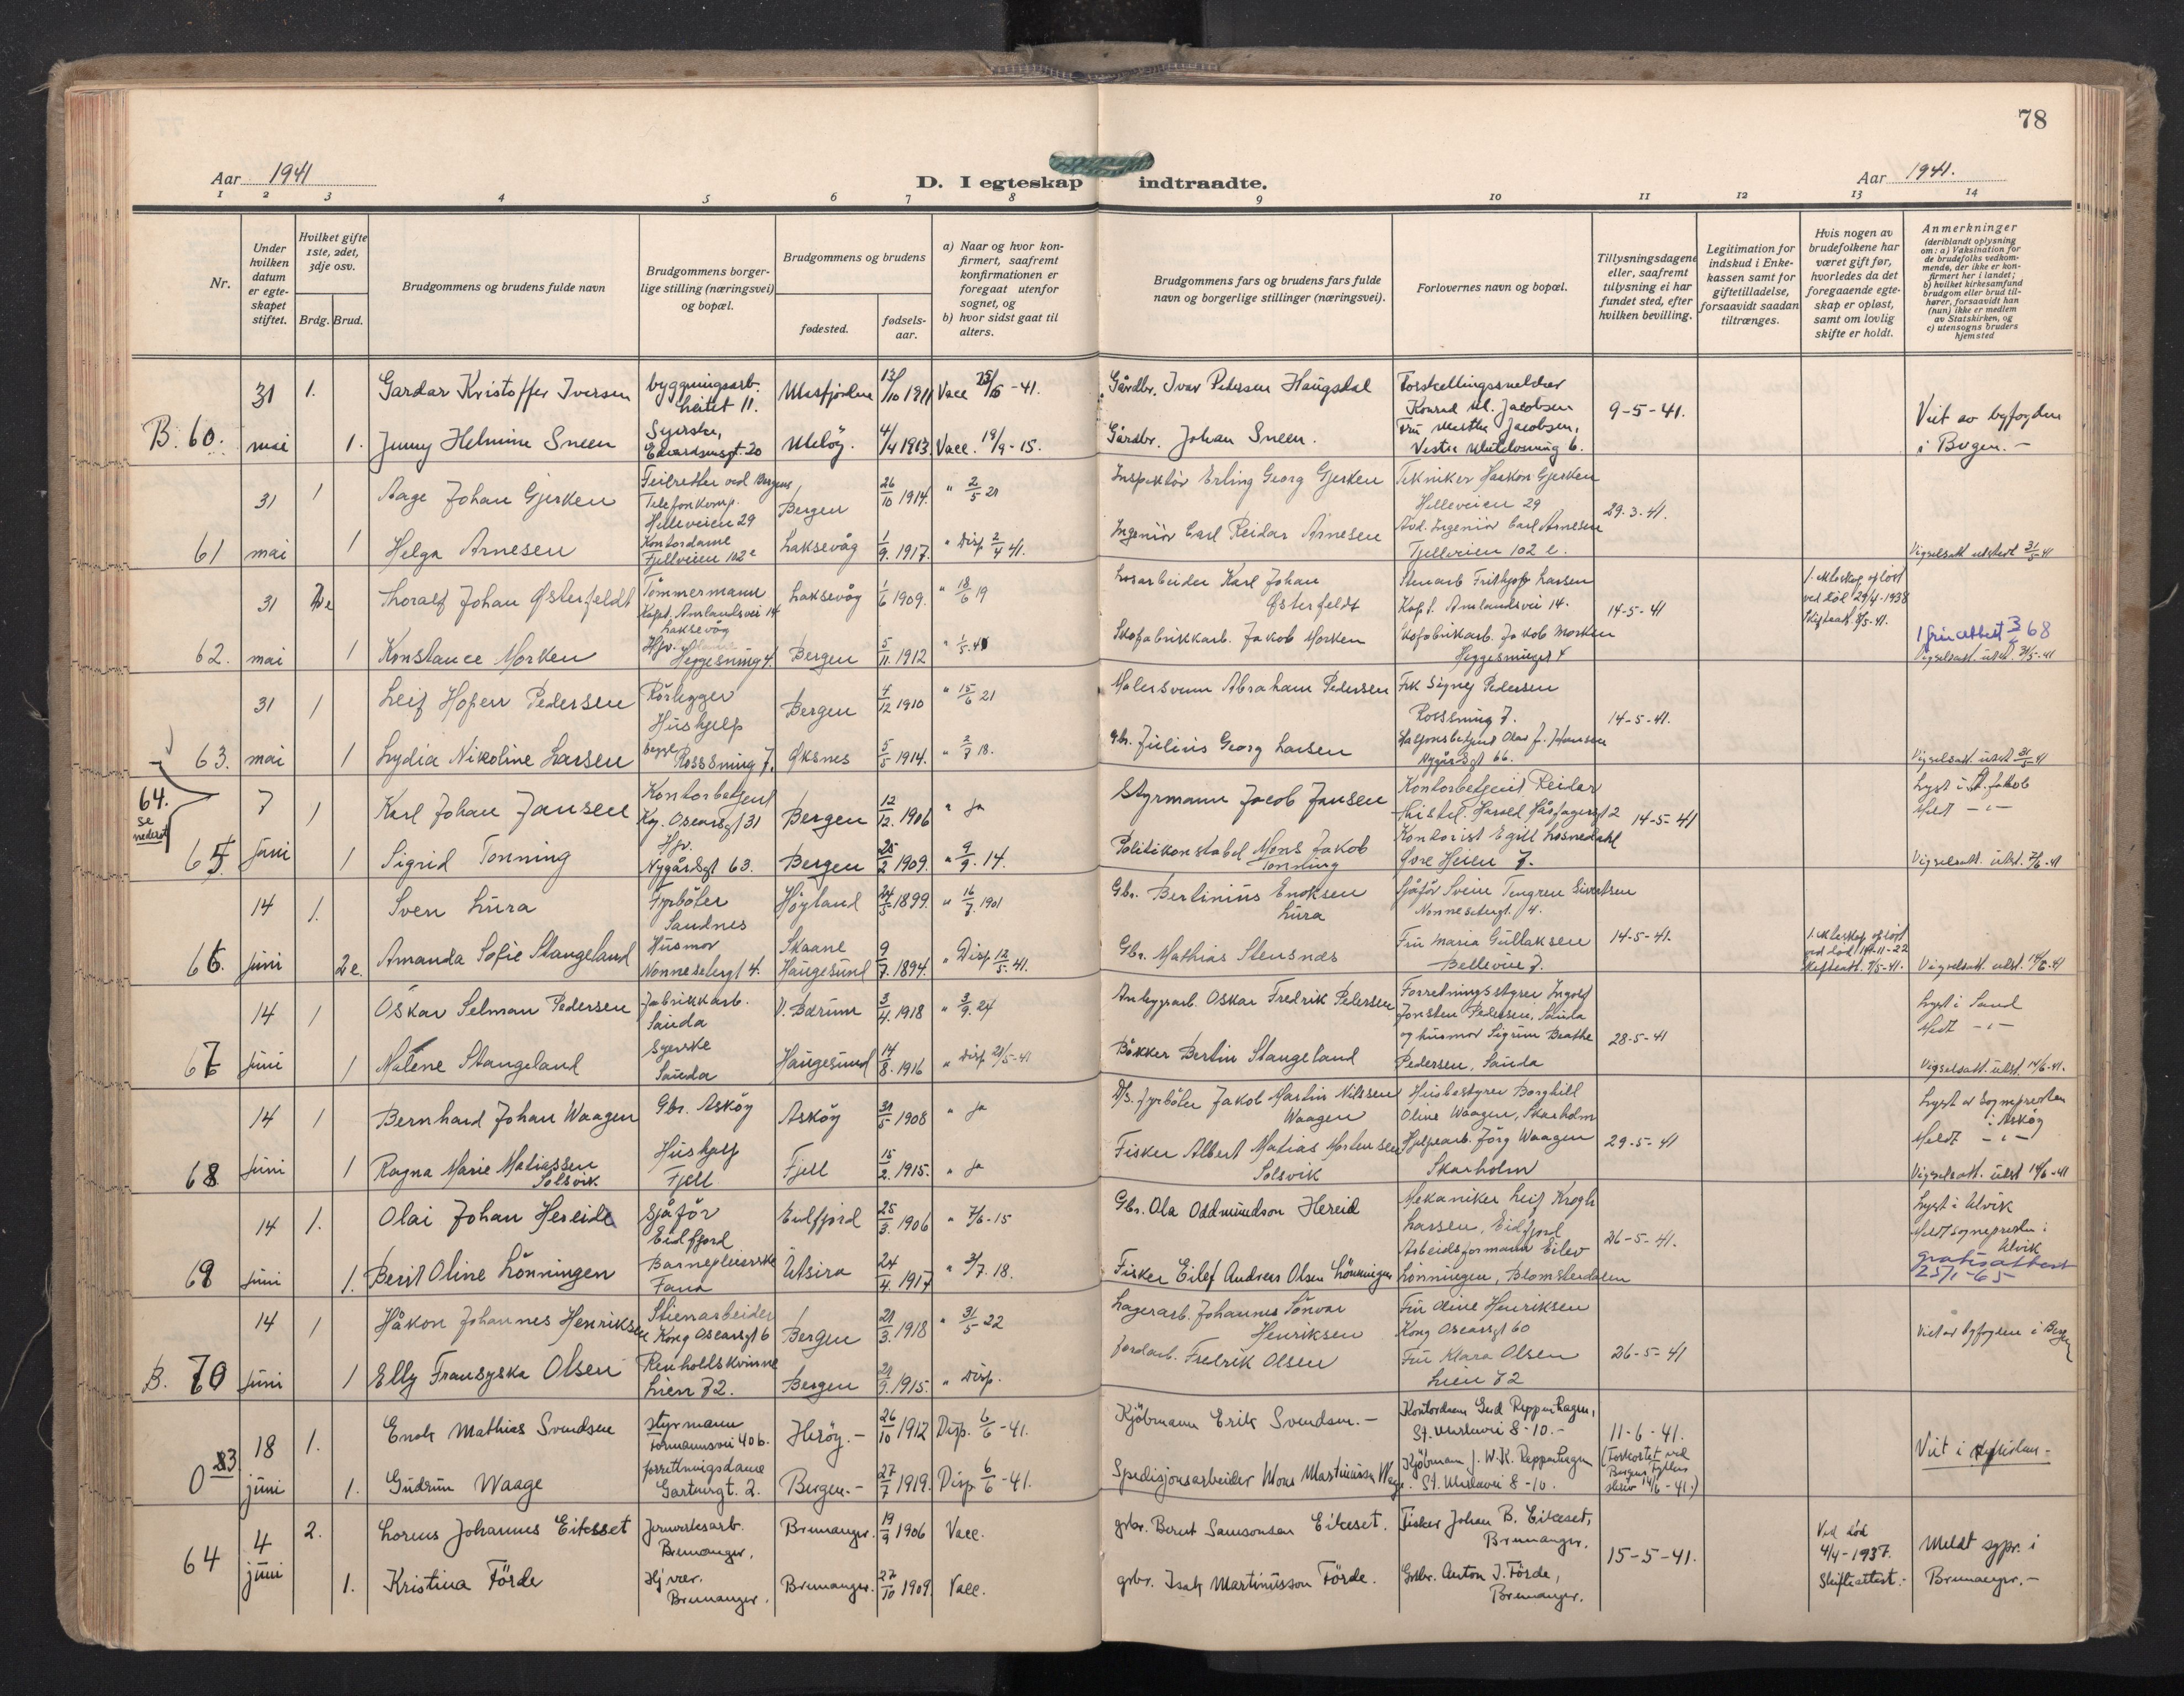 78
Aar 1941
D. I egteskap indtraadte.
Aar 1941.
1 2 3 4 5 6 7 8 9 10 11 12 13 14
Nr.
Under hvilken datum er egte-skapet stiftet.
Hvilket gifte 1ste, 2det, 3dje osv.
Brdg. Brud.
Brudgommens og brudens fulde navn
Brudgommens borger-lige stilling (næringsvei) og bopæl.
Brudgommens og brudens
fødested.
fødsels-aar.
a) Naar og hvor kon-firmert, saafremt konfirmationen er foregaat utenfor sognet, og
b) hvor sidst gaat til alters.
Brudgommens fars og brudens fars fulde navn og borgerlige stillinger (næringsvei).
Forlovernes navn og bopæl.
Tillysningsdagene eller, saafremt tillysning ei har fundet sted, efter hvilken bevilling.
Legitimation for indskud i Enke-kassen samt for giftetilladelse, forsaavidt saadan tiltrænges.
Hvis nogen av brudefolkene har været gift før, hvorledes da det foregaaende egte-skap er opløst, samt om lovlig skifte er holdt.
Anmerkninger
(deriblandt oplysning om: a) Vaksination for de brudefolks vedkom-mende, der ikke er kon-firmert her i landet; b) hvilket kirkesamfund brudgom eller brud til-hører, forsaavidt han (hun) ikke er medlem av Statskirken, og c) utensogns bruders hjemsted
31 1. Gardar Kristoffer Iversen byggningsarb. Leitet 11. 1911 Vacc -41. Gårdbr. Ivar Pedersen Haugsdal Konrad Jacobsen 9-5-41.
B. 60. mai 1. Jenny Helmine Sneen Syerske, Edvardsensgt. 20 Meløy. 4/4 1913. Vacc. 19/9-15. Gårdbr. Johan Sneen. Fru Jacobsen, Viet av byfogden i Bergen.-
31 1 Aage Johan Gjerken Feilretter ved Bergens Telefonkomp. Helleveien 29 Bergen 26/10 1914. " 2/5 21 Inspektör Erling Georg Gjerken Tekniker Haakon Gjerken Helleveien 29 29.3.41.
61 mai 1 Helga Arnesen Kontordame Fjellveien 102e Laksevåg 1/9. 1917. " Disp 2/4 41. Ingeniör Carl Reidar Arnesen Avd. Ingeniör Carl Arnesen Fjellveien 102 e. Vigselsatt utstedt 31/5-41
31 2de Thoralf Johan Østerfeldt Tömmermann Kapt. Amlandsvei 14 Laksevåg Laksevåg 1/6 1909. " 18/6 19 Løsarbeider Karl Johan Østerfeldt Stenarb Frithjof Larsen Kapt. Amlandsvei 14. 14-5-41 1. ekteskap opløst ved död 29/4-1938 Skifteatt.
62. mai 1 Konstance Morken Hjv. Heggesmug 4. Bergen 5/11. 1912 Skofabrikkarb. Jakob Morken Skofabrikarb. Jakob Morken Heggesmuget 4 Vigselsatt. utst. 31/5-41
31 1 Leif Hopen Pedersen Rörlegger Bergen 4/12 1910 " 15/6 21 Malersvenn Abraham Pedersen Frk Signy Pedersen Rossmug 7. 14-5-41.
63. mai 1 Lydia Nikoline Larsen Hushjelp begge Rossmug 7. Øksnes 5/5 1914. " 2/7 18. gbr. Julius Georg Larsen Nygårdsgt 66. Vigselsatt. utst 31/5-41
64. se nederst
7 1 Karl Johan Jansen Kontorbetjent Kg. Oscarsgt 31 Bergen 12/12. 1906 " Ja Styrmann Jacob Jansen Kontorbetjent Reidar Harald Hårfagersgt 2 14-5-41 Lyst i St. Jakob Meldt -"-
65 juni 1 Sigrid Tonning Hjv. Nygårdsgt 63. Bergen 25/2 1909. " 9/9. 14. Politikonstabel Mons Jakob Tonning Kontorist Egill Losnedahl Øvre Heien 7. Vigselsatt. utst. 7/6-41
14 1. Sven Lura Fyrböter Sandnes Höyland 24/5 1899. " 16/7. 1901 Gbr. Bertinius Enoksen Lura Sjåför Svein Tengren Sivertsen Nonnesetergt. 4. 14-5-41.
66. juni 2e. Amanda Sofie Stangeland Husmor Nonnesetergt 4. Skaane Haugesund 9/7. 1894. " Disp 12/5. 41. Gbr. Mathias Stensnæs Fru Maria Gullaksen Bellevue 7. 1. ekteskap opløst ved död 14-11-22 Skifteatt. Vigselsatt. utst. 14/6-41
14 1 Oskar Selman Pedersen Fabrikkarb. Sauda V. Bærum 3/4. 1918 " 3/9. 24 Anleggsarb. Oskar Fredrik Pedersen Forretningsstyrer Ingolf Jonsten Pedersen, Sauda og husmor Sigrun Beathe Pedersen, Sauda 28-5-41 Lyst i Sand Meldt -"-
67 juni 1 Malene Stangeland Syerske Sauda Haugesund 14/8. 1916 " Disp 21/5-41 Bökker Bertin Stangeland Vigselsatt. utst. 14/6-41.
14 1 Bernhard Johan Waagen Gbr. Asköy Asköy 31/5 1908 " Ja D/S. fyrböter Jakob Martin Nilssen Waagen Husbestyrer Borghild Oline Waagen, Skarholm 29-5-41 Lyst av Sognepresten i Asköy Meldt -"-
68 juni 1 Ragna Marie Matiassen Solsvik Hushjelp Fjell Fjell 15/2. 1915. " Ja Fisker Albert Matias Mortensen Solsvik Hjelpearb. Jörg Waagen Skarholm Vigselsatt. utst 14/6-41
14 1. Olai Johan Hereide Sjåför Eidfjord Eidfjord 25/3. 1906 " 7/6-15 Gbr. Ola Oddmundson Hereid Mekaniker Leif Krogh Larsen, Eidfjord 26-5-41. Lyst i Ulvik Meldt sognepresten i Ulvik
69 juni 1. Berit Oline Lönningen Barnepleierske Fana Utsira 24/4. 1917 " 3/7. 18. Fisker Eilef Andreas Olsen Lönningen Arbeidsformann Eilev Lönningen, Blomsterdalen gratisattest 25/1-65
14 1 Håkon Johannes Henriksen Kong Oscarsgt 6 Bergen 21/3. 1918 " 31/5 22 Lagerarb. Johannes Henriksen Fru Oline Henriksen Kong Oscarsgt 60 26-5-41 Viet av byfogden i Bergen
B. 70 juni 1 Elly Fransyska Olsen Renholdskvinne Lien 72. Bergen 21/9. 1915. " Disp. Jordarb. Fredrik Olsen Fru Klara Olsen Lien 72
18 1. Enok Mathias Svendsen styrmann Formannsvei 40b. Heröy.- 26/10 1912 Disp. 6/6-41. Kjöbmann Erik Svendsen.- St. Markevei 8-10.- 11-6-41.
0 83 juni 1. Gudrun Waage forretningsdame Gartnergt. 2. Bergen.- 27/7 1919. Disp 6/6-41. Spedisjonsarbeider Mons Martinussen Waage. Kjöbmann J. W. K. Reppenhagen St. Markevei 8-10. (Forkortet ved Bergens Fylkes skriv 14/6-41.)
4 2. Lorens Johannes Eikeset Jernverksarb. Bremanger. Bremanger. 19/9 1906 Vacc. grbr. Bernt Samsonsen Eikeset. Fisker Johan B. Eikeset, Bremanger. 15-5-41. Ved död 4/4-1937. Skifteattest.- Meldt sgpr. i Bremanger.-
64 juni 1. Kristina Förde Hj.vær. Bremanger. Bremanger. 27/10 1909. Vacc. grbr. Isak Martinusson Förde. Grbr. Anton J. Förde, Bremanger.